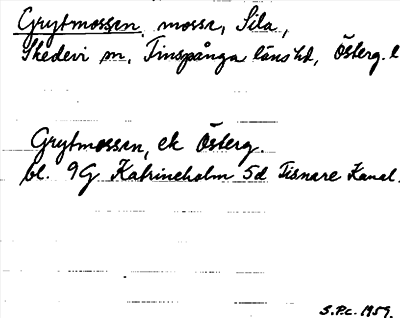 Grytmossen, mossa, Sila,
Skedevi sn, Finspånga läns hd, Österg. l
Grytmossen, ek Österg.
bl. 9G Katrineholm 5d Tisnare Kanal.
S.P.C. 1959.